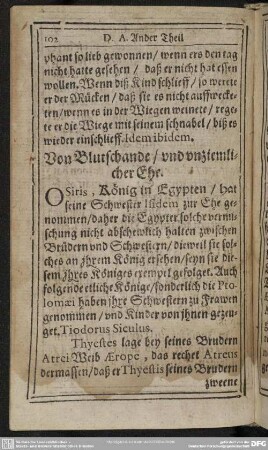 102 D. A. Ander Theil
phant so lieb gewonnen / wenn ers den tag
nicht hatte gesehen / daß er nicht hat essen
wollen. Wenn diß Kind schlieff / so werete
er der Mücken / daß sie es nicht auffwecke-
ten / wenn es in der Wiegen weinete / rege-
te er die Wiege mit seinem schnabel / biß es
wieder einschlieff. Idem ibidem.
Von Blutschande / vnd vnziemli-
cher Ehe.
OSiris, König in Egypten / hat
seine Schwester Isidem zur Ehe ge-
nommen / daher die Egypter solche vermi-
schung nicht abschewlich halten zwischen
Brüdern vnd Schwestern / dieweil sie sol-
ches an jhrem König ersehen / seyn sie die-
sem jhres Königes exempel gefolget. Auch
folgende etliche Könige / sonderlich die Pto-
lomæi haben jhre Schwestern zu Frawen
genommen / vnd Kinder von jhnen gezeu-
get, Tiodorus Siculus.
Thyestes lage bey seines Brudern
Atrei Weib Ærope, das rechet Atreus
dermassen / daß er Thyestis seines Brudern
zweene